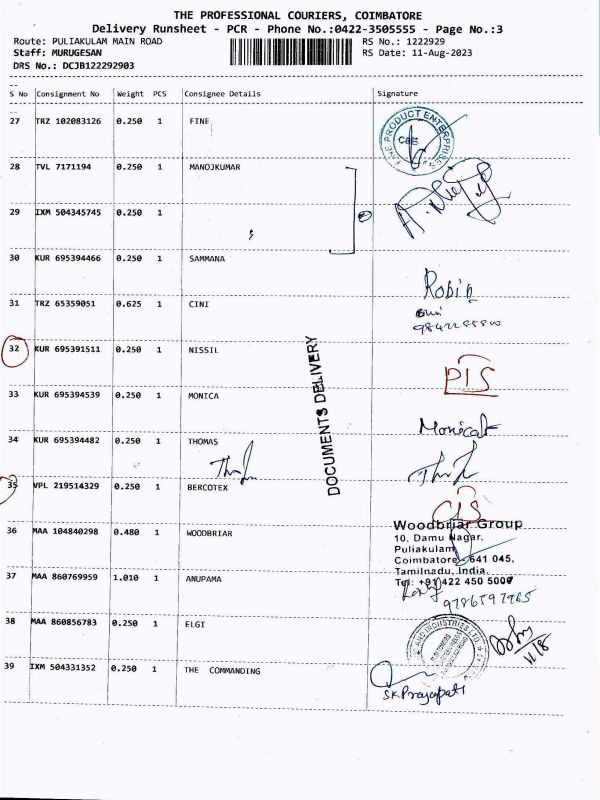 THE PROFESSIONAL COURIERS, COIMBATORE
Delivery Runsheet - PCR - Phone No.:0422-3505555 - Page No.:3
Route: PULIAKULAM MAIN ROAD RS No.: 1222929
Staff: MURUGESAN RS Date: 11-Aug-2023
DRS No.: DCJB122292903
S No Consignment No Weight PCS Consignee Details Signature
27 TRZ 102083126 0.250 1 FINE
FINE PRODUCT ENTERPRISES
CBE
28 TVL 7171194 0.250 1 MANOJKUMAR
29 IXM 504345745 0.250 1
30 KUR 695394466 0.250 1 SAMMANA
Robin
31 TRZ 65359051 0.625 1 CINI
32 KUR 695391511 0.250 1 NISSIL
PIS
33 KUR 695394539 0.250 1 MONICA
34 KUR 695394482 0.250 1 THOMAS
35 VPL 219514329 0.250 1 BERCOTEX
CIS
DOCUMENTS DELIVERY
36 MAA 104840298 0.480 1 WOODBRIAR
Woodbriar Group
10, Damu Nagar,
Puliakulam
Coimbatore 641 045,
Tamilnadu, India.
Tel: +91 422 450 5000
37 MAA 860769959 1.010 1 ANUPAMA
9786597965
38 MAA 860856783 0.250 1 ELGI
11/8
39 IXM 504331352 0.250 1 THE COMMANDING
SK Prajapati